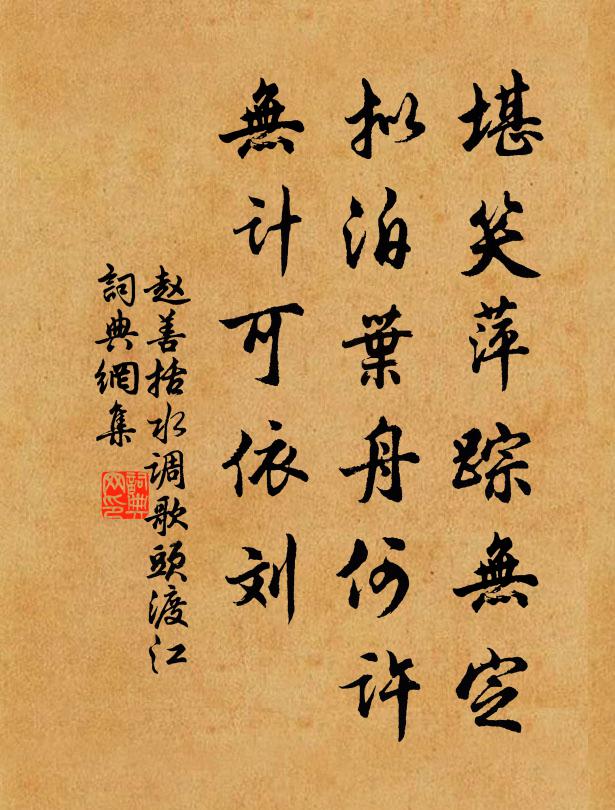 堪笑萍踪無定
拟泊葉舟何許
無计可依刘
赵善括水调歌頭渡江
詞典網集
詞典網印